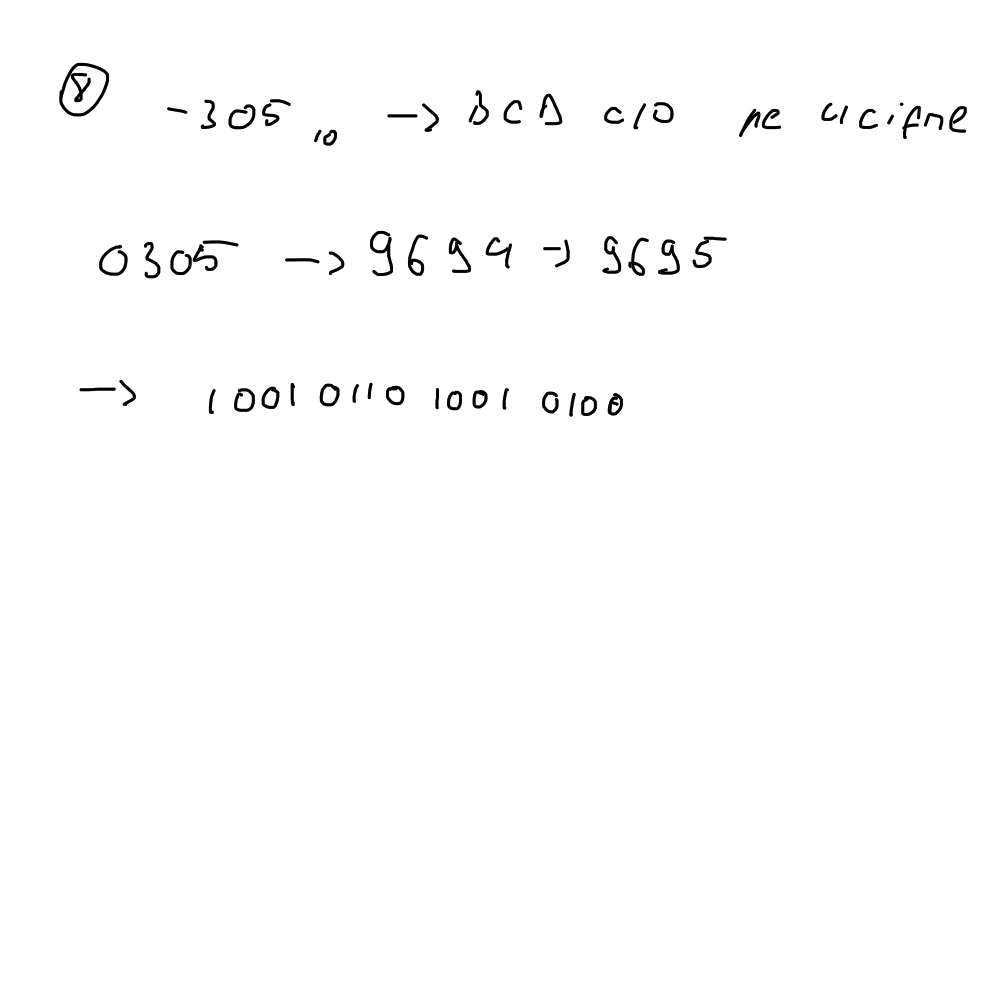 8 -305 10 -> BCD C10 pe 4 cifre
0305 -> 9694 -> 9695
-> 1001 0110 1001 0100